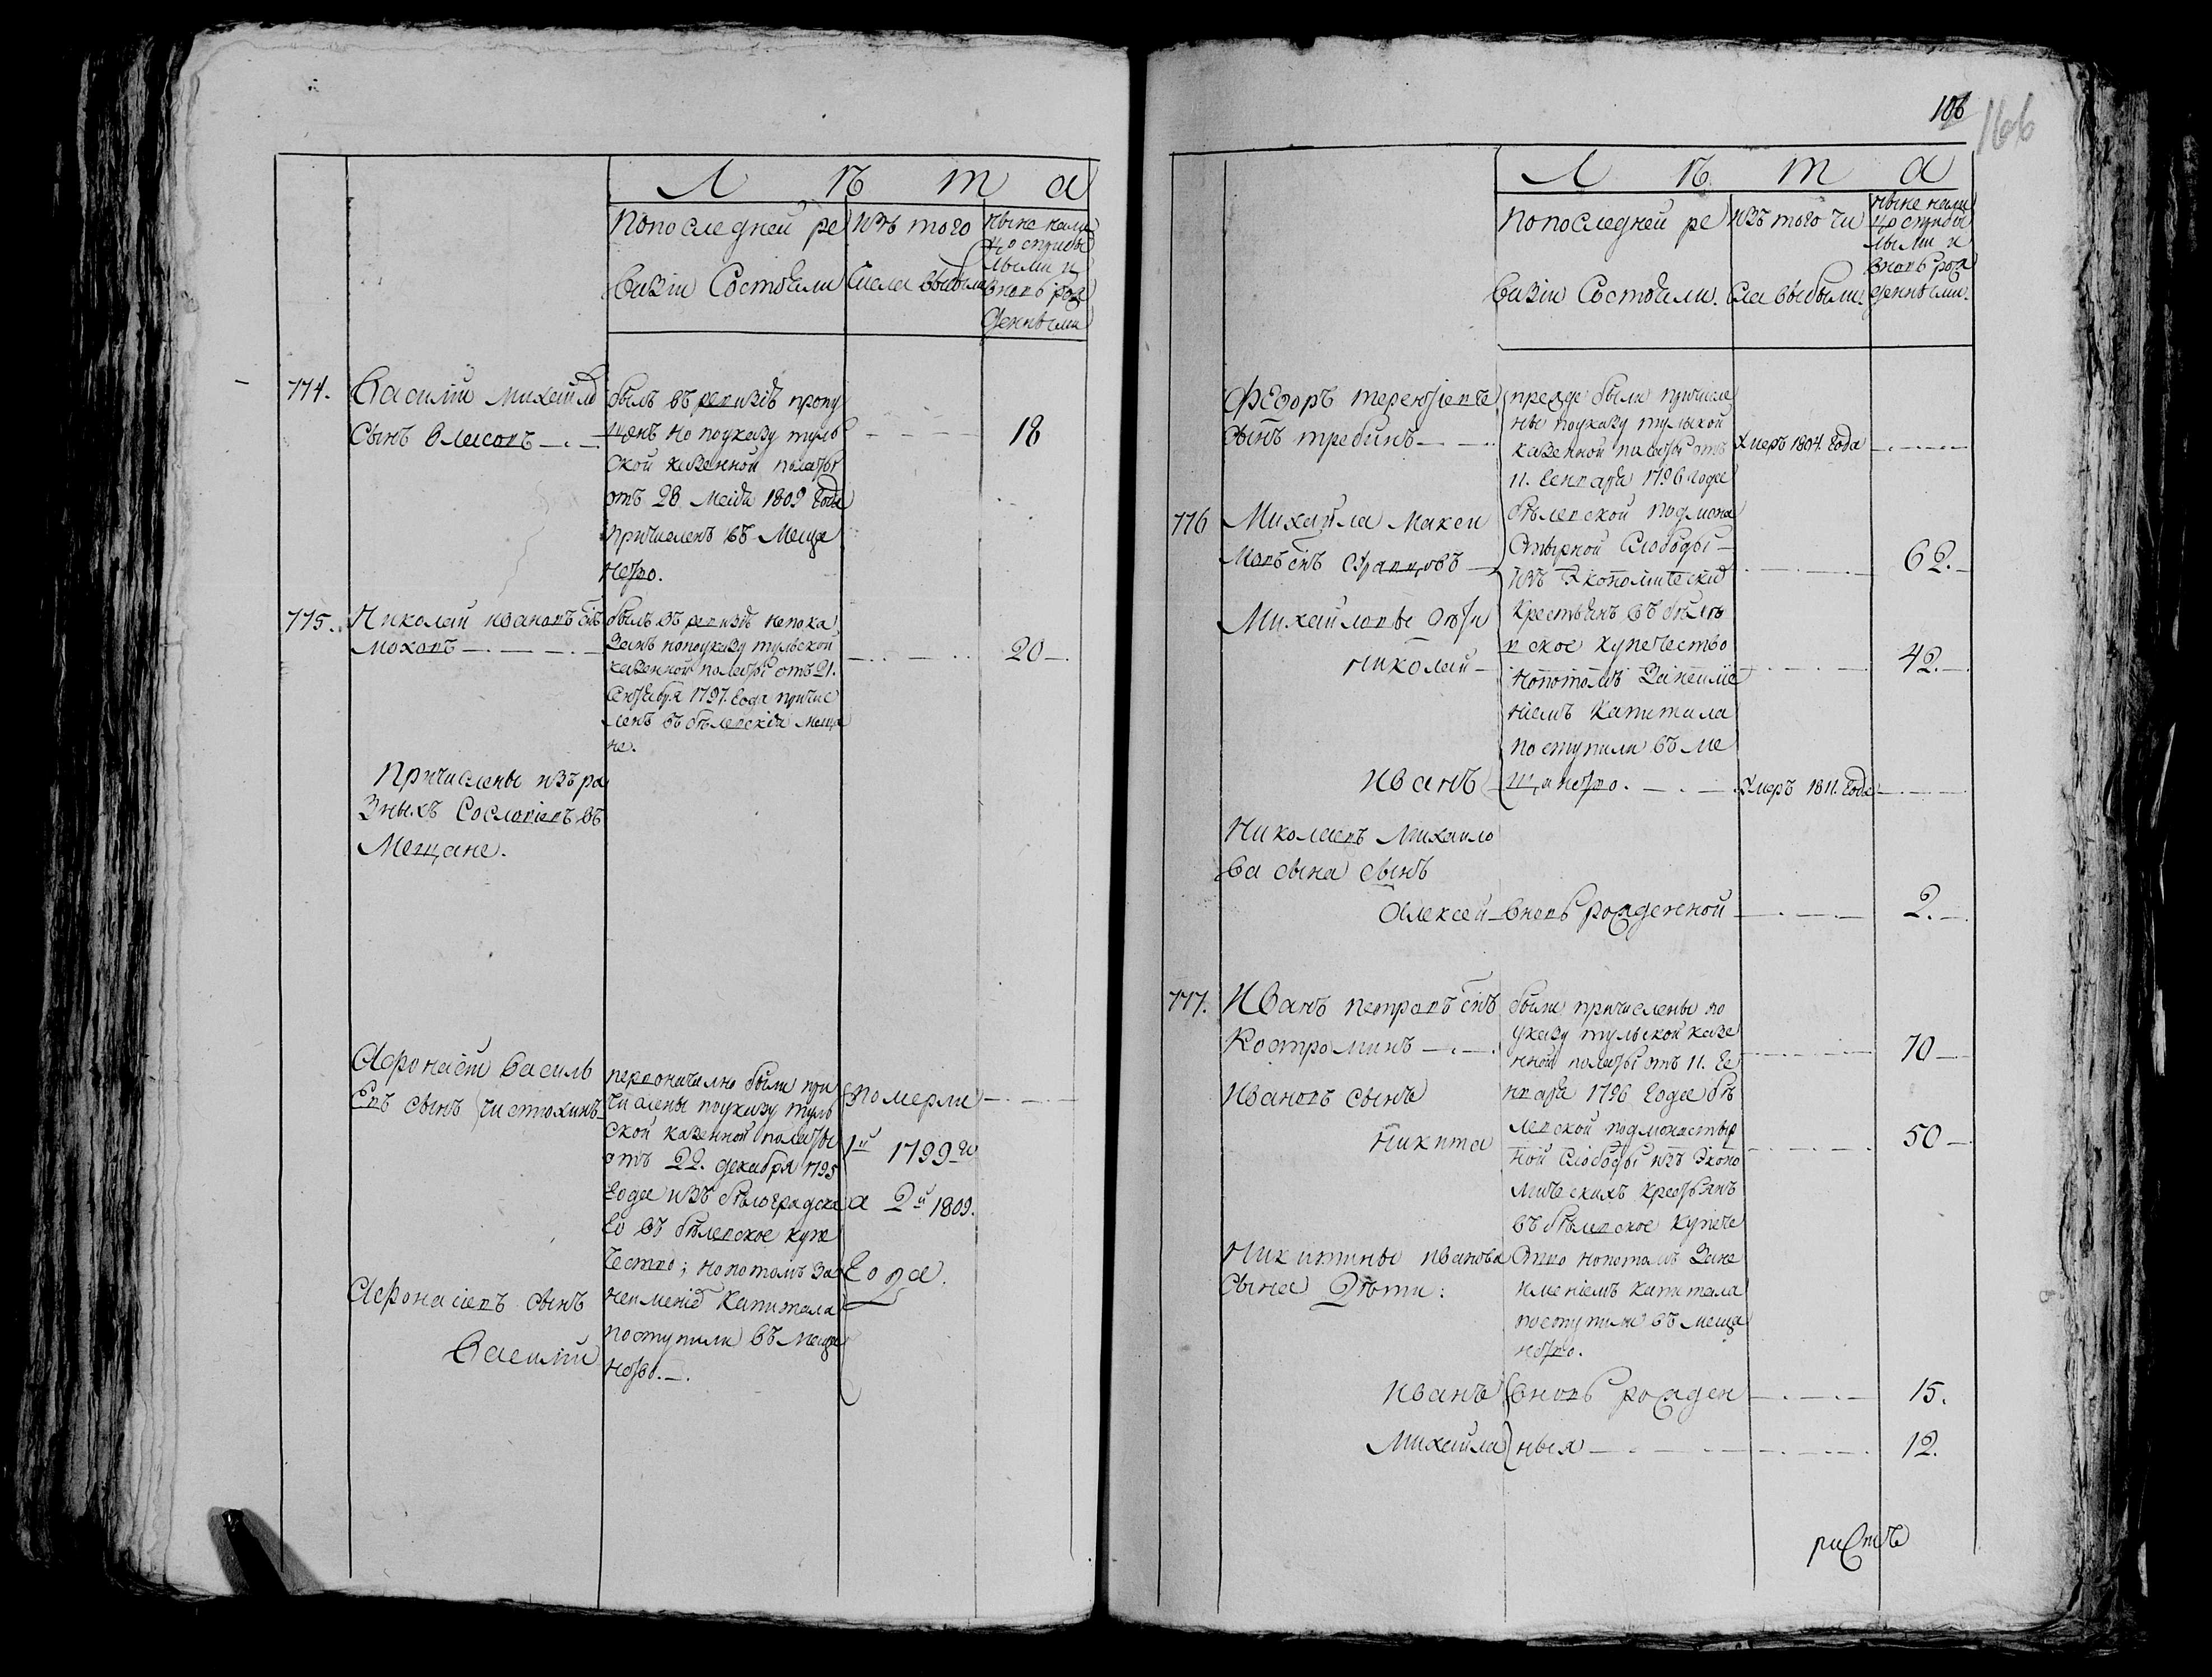 Л ѣ т а
По последней ре
визіи состояли
изъ того
числа выбыли
ныне нали
цо с прибы
лыми и
вновь рож
денными
774.
Василій михайлъ
сынъ власовъ
былъ въ ревизіи пропу
щенъ но по указу туль
ской казенной палаты
отъ 28 маія 1809 года
причисленъ въ меща
нство.
18
775.
Николай ивановъ снъ
моховъ
былъ въ ревизіи непока
занъ но по указу тульской
казенной палаты отъ 21.
сентября 1797. года причис
ленъ въ бѣлевскія меща
не.
20
Причислены изъ ра
зныхъ сословіевъ въ
Мещане.
Афонасій василь
евъ сынъ чистохинъ
первоначално были при
числены по указу туль
ской казенной палаты
отъ 22. декабря 1795
года изъ бѣлоградска
го въ бѣлевское купе
чество; но потомъ за
неименіе капитала
поступили въ меща
нство.
померли
1й 1799го
а 2й 1809.
года.
Афонасіевъ сынъ
Василій
106
166
Л ѣ т а
По последней ре
визіи состояли.
изъ того чи
сла выбыли.
ныне нали
цо с прибы
лыми и
вновь рож
денными.
Федоръ терентіевъ
сынъ требинъ
прежде были причисле
ны по указу тульской
казенной палаты отъ
11. генваря 1796 года
бѣлевской подмона
стырной слободы
изъ экономическихъ
крестьянъ въ бѣлев
ское купечество
но потомъ за неиме
ніемъ капитала
поступили въ ме
щанство.
умеръ 1804. года
776
Михайла макси
мовъ снъ
62.
Михайловы дѣти
николай
42.
иванъ
умеръ 1811. года
Николаевъ михайло
ва сына сынъ
Алексей
вновь рожденной
2.
777.
Иванъ петровъ снъ
Костроминъ
были причислены по
указу тульской казе
нной палаты отъ 11. ге
нваря 1796 года бѣ
левской подмонастыр
ной слободы изъ эконо
мическихъ крестьянъ
въ бѣлевское купече
ство но потомъ за не
именіемъ капитала
поступили въ меща
нство.
70
Ивановъ сынъ
никита
50
Никитины иванова
сына дѣти:
иванъ
вновь рожден
15.
Михайла
ныя
12.